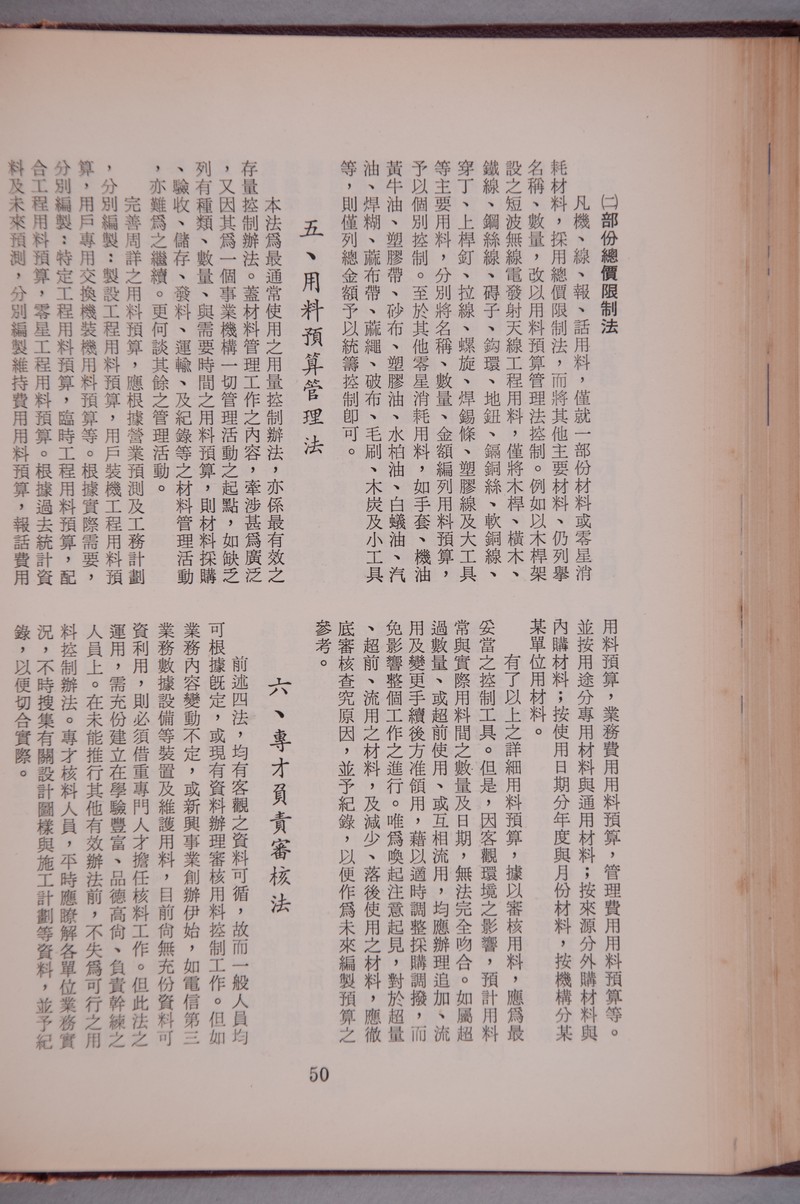 ㈡部份總價限制法
凡機、線、報、話用料，僅就一部份材料或零星消
耗材料，採用總價限制法，而將其他主要材料、仍列擧
名稱、數量，改以用料預算管理法控制。例如以木桿架
設之短波無線電發射天線工程用料，僅將木桿、橫木、
鐵線、鋼絲線、碍子、鈎環、地鈕、鎘銅絲、軟銅線、
穿丁、上桿釘、拉線、螺旋、焊錫條、塑膠線及大工具
等主要用料，分別將名稱、數量、金額編列用料預算，
予以個別控制。至於其他零星消耗用料，如手套、機油
黃牛油、塑膠帶、砂布、塑膠油、水柏油、白蠟油、汽
油、焊糊、蔴布帶、蔴繩、破布、毛刷、木炭及小工具
等，則僅列總金額予以統籌控制卽可。
五、用料預算管理法
本法爲最通常使用之用量控制辦法，亦係最有效之
存量控制辦法。蓋材料管理工作之內容，牽涉甚爲廣泛
，又因其爲一個事業機構一切管理活動之起點，如缺乏
列有種類、數量、與需要時間之用料預算，則材料採購
、驗收、儲存、發料、運輸、及紀錄等之材料管理活動
，亦難爲之繼續。更何談其餘之管理活動。
完善周詳之用料預算，應根據營業預測及工務計劃
，分別編製：製設工程用料預算，用戶裝機工程用料預
算，用戶專用交換機裝機用料預算等。根據實際需要，
分別編製：特定工程用料預算，臨時工程用料預算，配
合工程用料預算，零星工程用料預算。根據過去統計資
料及未來預測，分別編製維持費用用料預算，報話費用
用料預算，業務費用用料預算，管理費用用料預算等。
並按用途分專用材料與通用材料；按來源分外購材料與
內購材料；按使用日期分年度與月份材料，按機構分某
某單位用材料。
有了以上之詳細用料預算，據以審核用料，應爲最
妥當之控制工具。但是，因客觀環境之影響，預計用料
常與實際用料間之數量及日期，無法完全吻合。如屬超
過數量、或超前使用、或互相流用，均應辦理追加、流
用及變更手續後方准領用，藉以適時調整採購調撥，而
免影響整個工作之進行。唯爲喚起注意起見，對於超量
、超前、流用之材料，及減少、落後使用之材料，應徹
底審核查究原因，並予紀錄，以便作爲未來編製預算之
參考。
六、專才負責審核法
前述四法，均有客觀之資料可循，故而一般人員均
可根據旣定，或現有資料辦理審核用料控制工作。但如
業務內容變動不定，或新興事業創辦伊始，如電信第三
業務數據設備等裝置及維護用料，目前尙無充份資料可
資利用，則必須借重專門人才擔任核料工作。但此法之
運用，需充份建立在學驗豐富、品德高尙、負責幹練之
人員上。在未能推行其他有效辦法前，不失爲可行之用
料控制辦法。專才核料人員，平時應瞭解各單位業務實
況，不時搜集有關設計圖樣與施工計劃等資料，並予紀
錄，以便切合實際。
50